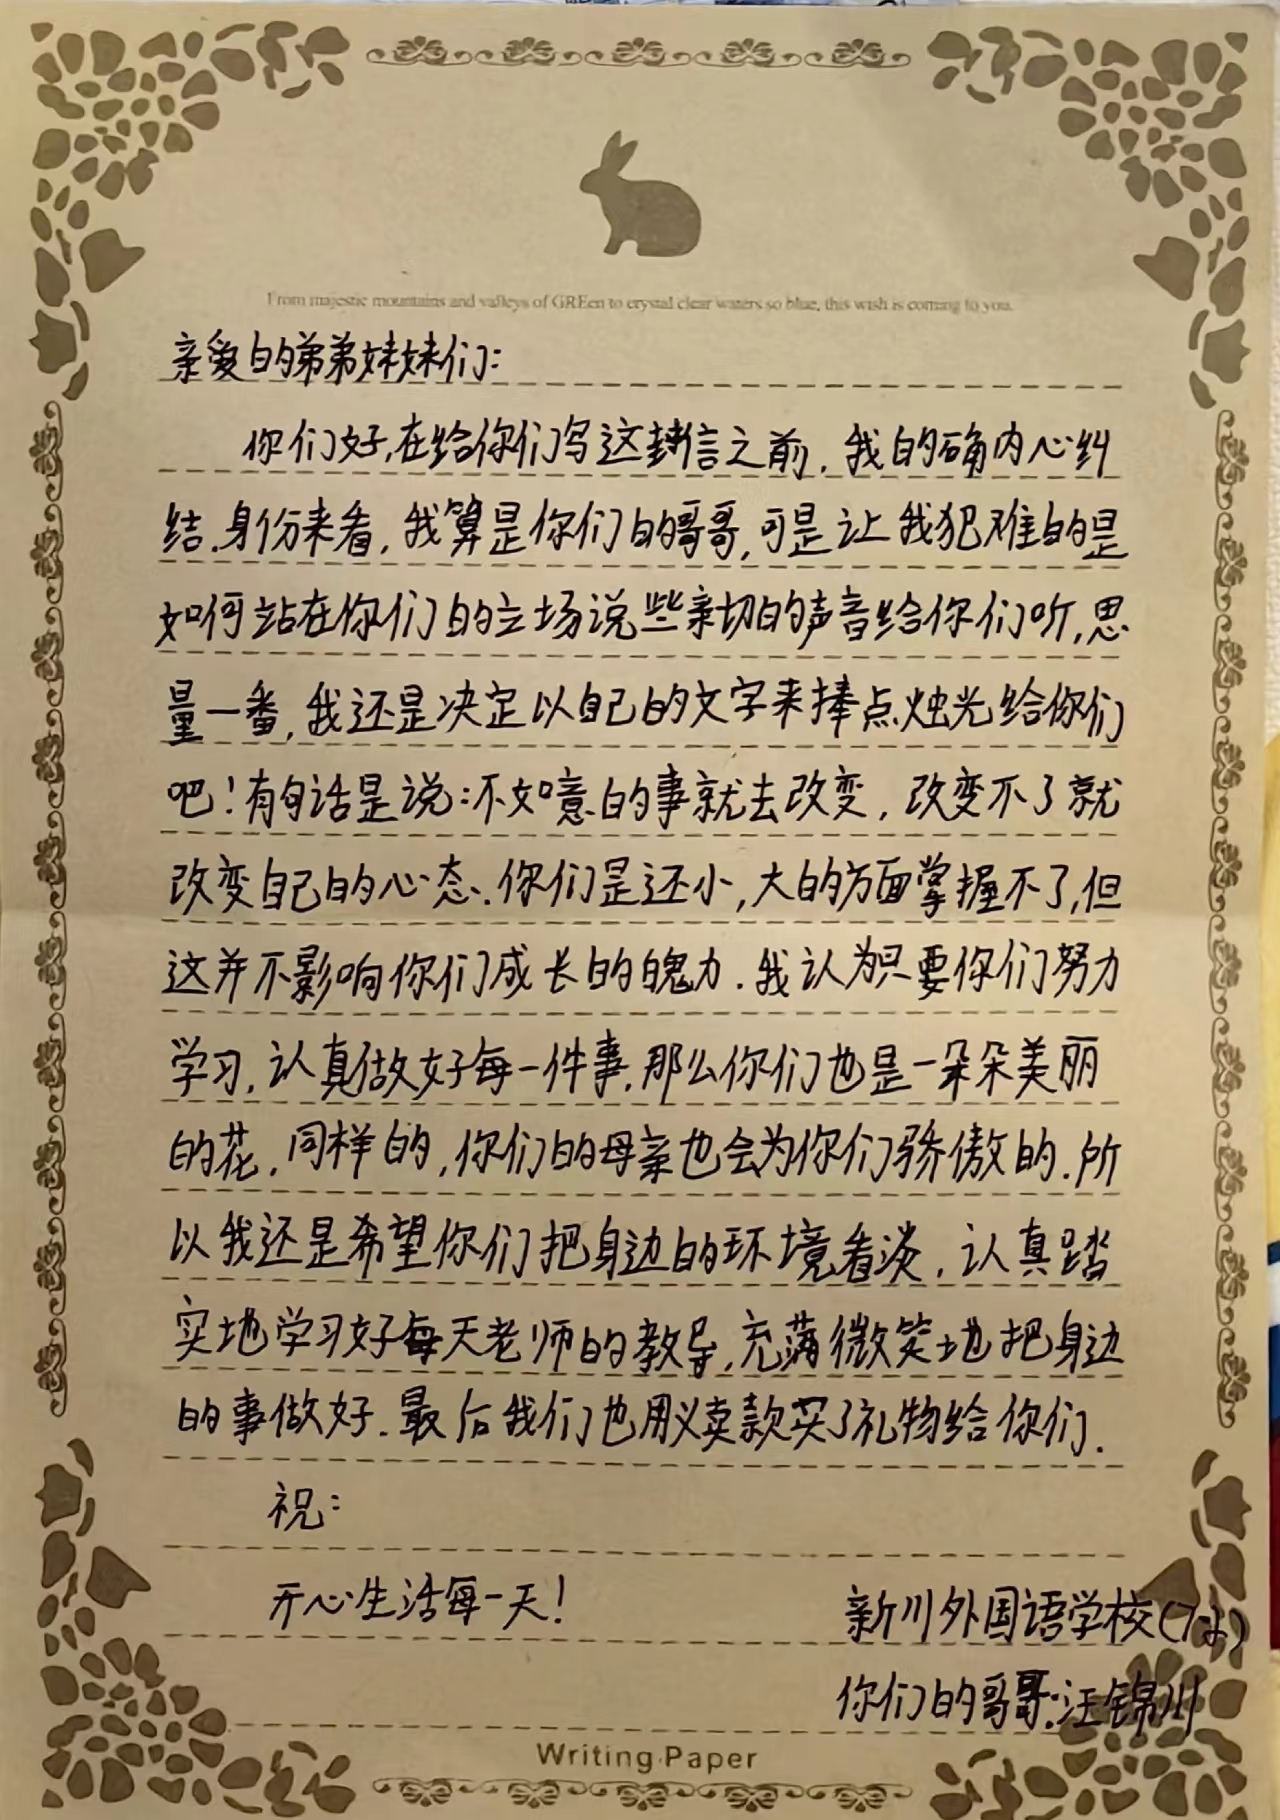 From majestic mountains and valleys of GREen to crystal clear waters so blue, this wish is coming to you.
亲爱的弟弟妹妹们:
你们好,在给你们写这封信之前,我的确内心纠
结.身份来看,我算是你们的哥哥,可是让我犯难的是
如何站在你们的立场说些亲切的声音给你们听,思
量一番,我还是决定以自己的文字来捧点烛光给你们
吧!有句话是说:不如意的事就去改变,改变不了就
改变自己的心态.你们是还小,大的方面掌握不了,但
这并不影响你们成长的魄力.我认为只要你们努力
学习,认真做好每一件事.那么你们也是一朵朵美丽
的花,同样的,你们的母亲也会为你们骄傲的.所
以我还是希望你们把身边的环境看淡,认真踏
实地学习好每天老师的教导,充满微笑地把身边
的事做好.最后我们也用义卖款买了礼物给你们.
祝:
开心生活每一天!
新川外国语学校
你们的哥哥:汪锦川
Writing Paper